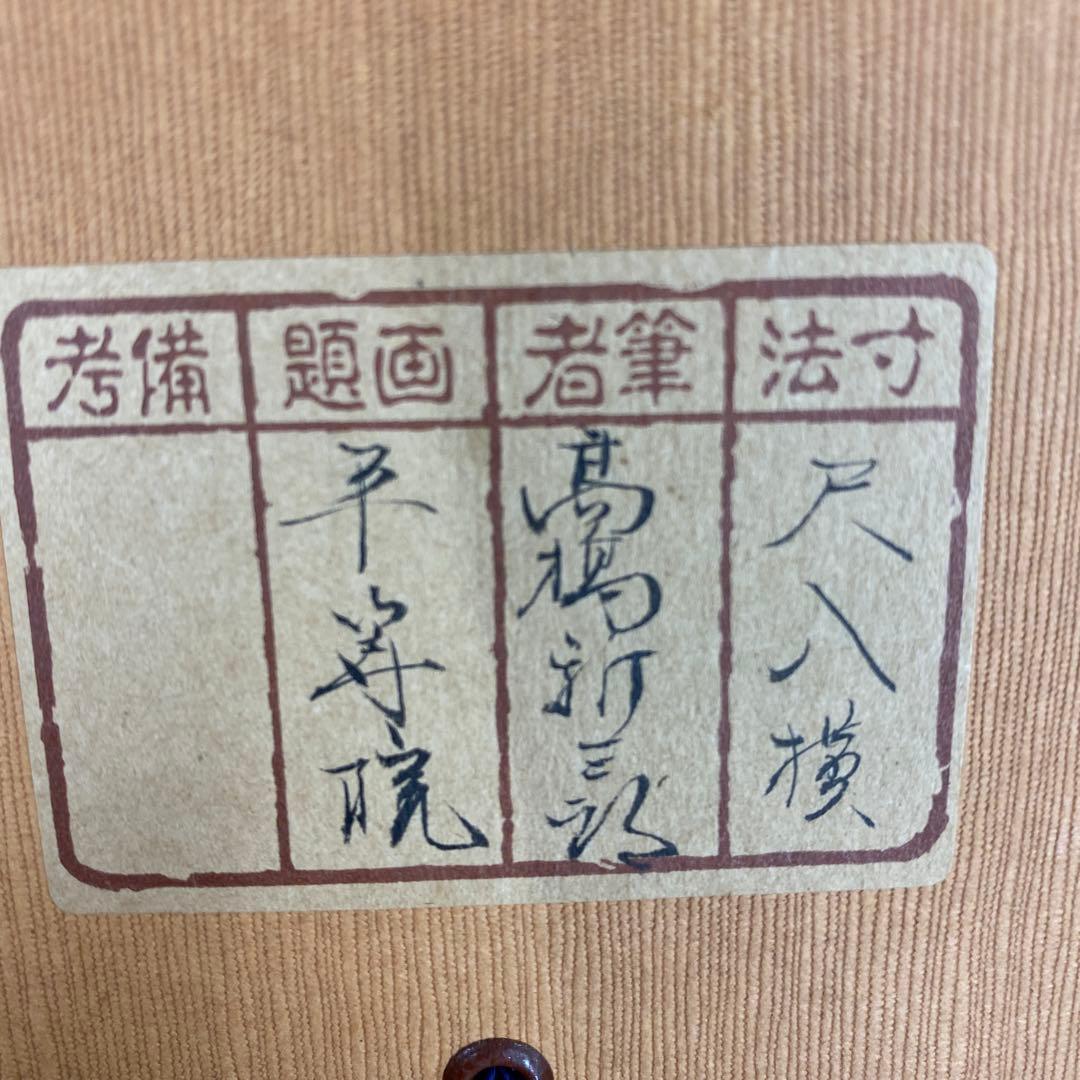 寸法
尺八横
筆者
高橋新三郎
画題
平等院
備考